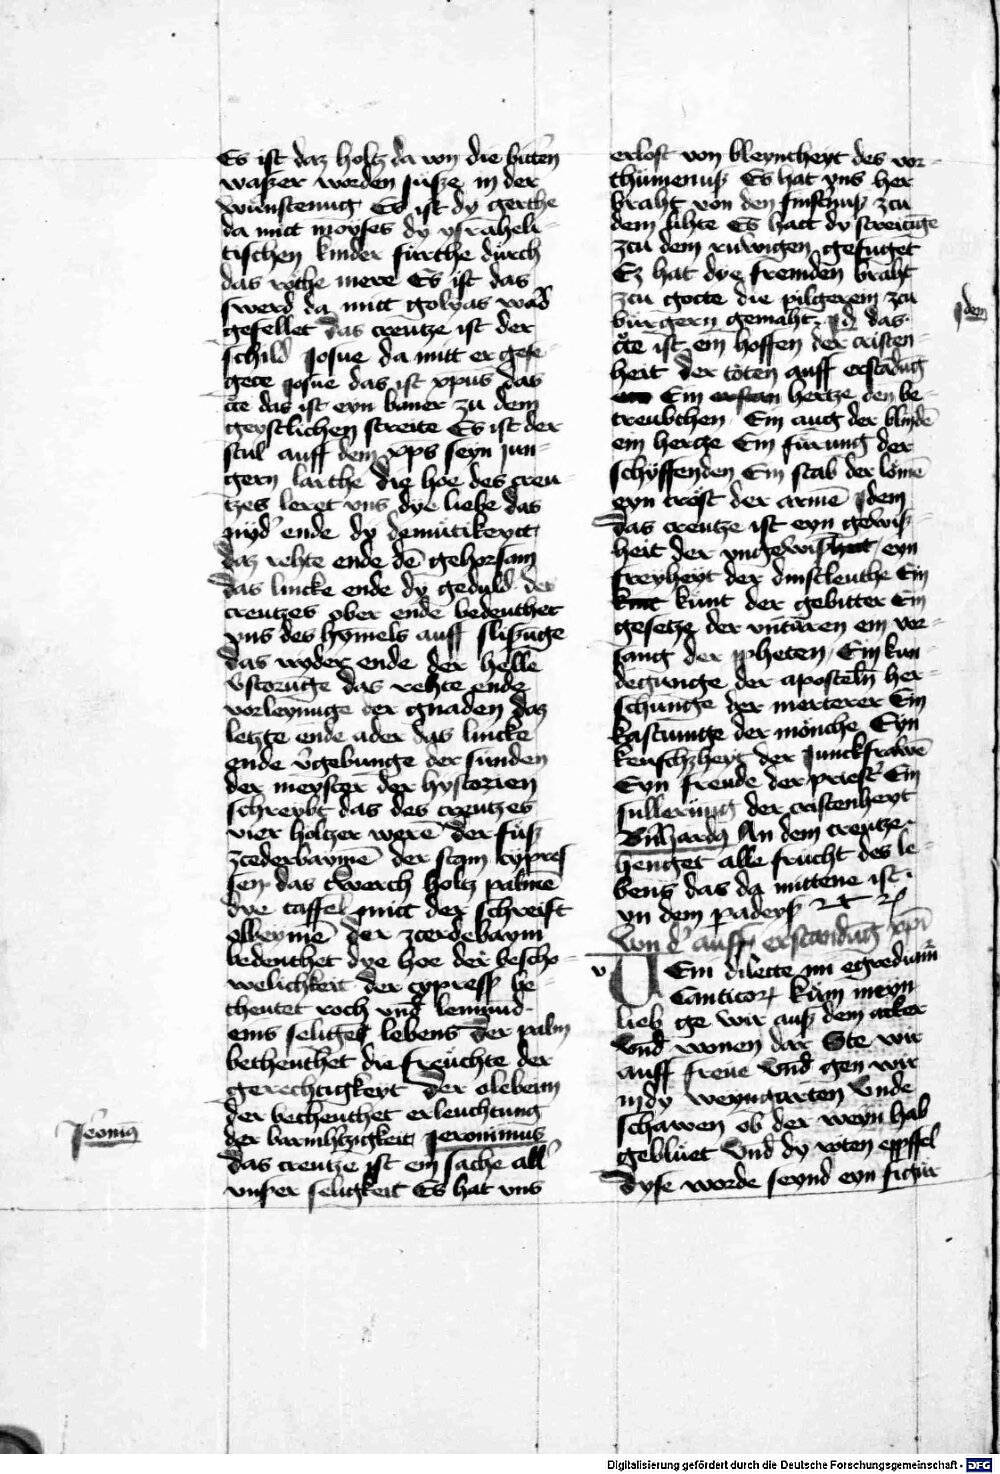 Es ist daz holtz da von die bitten
waßer worden süsze in der
wünstenug Es ist dy gerthe
da mitt moyses dy ysraheli-
tischen kinder fürthe durch
das rothe mere Es ist das
swerd da mitt golyas ward
gefellet das creutze ist der
schild Josue da mitt er gese-
gete Josue das ist xpūs das
cr̄tze das ist eyn baner zu dem
geystlichen streite Es ist der
stul auff dem xp̄s seyn jun-
gern larthe die hoe des creu-
tzes leret vns dye liebe das
nyd' ende dy demütikeytt
daz rehte ende dē gehorsam
das lincke ende dy geduld des
creutzes ober ende bedeuthet
vns des hymels auff slißuge
das nyder ende der helle
v̄storūge das rehte ende
vorleynuge der gnaden daz
letzte ende ader das lincke
ende v̄gebunge der sünden
der meyster der hystorien
schreybt das des creutzes
vier holtzer werē der fuß
zcederbaymē der stam cypres
sen das twerch holtz palmē
dye taffel mitt der schreift
olbeymē der zcederbaym
bedeuthet dye hoe der bescho-
welichkeit der cypress be-
theutet roch vnd lemund
eins seliges lebens Der palm
betheuthet die freüchte der
gerechtigkeyt der olebeim
der betheuthet erleuchtung
der barmh'tzigkeit Jeronimus
das creutze ist ein sache all'
vnser seligkeit Es hat vns
Jeōnius
erlost von bleyntheyt des vor-
thümenuß Es hat vns her
braht von den finstnuß zcu
dem lihte Es hatt dy streitige
zcu dem ruwigen gefuget
Ez hat dye fremden braht
zcu gotte die pilgerem zcu
bürgern gemaht Id' das
cr̄tze ist ein hoffen der cristen-
heit der toten auff erstādūg
Ein hertze den be-
treubthen Ein aug der blindē
ein hertze Ein fürung der
schyffenden Ein stab der lōmē
eyn trost der armē Idem
das creutze ist eyn gewiß-
heit der vngewißheit eyn
freyheyt der dinstleuthe Ein
künt der gebitter Ein
gesetze der vntüren ein vor-
sang der ꝓheten Ein kun-
degunge der aposteln her-
schunge der merterer Ein
kastiunge der mönche Eyn
keuschheyt der Junckfrawē
Eyn freude der priest' Ein
sullerüng der cristenheyt
Bn̄hardꝯ An dem creutze
henget alle frucht des le-
bens das da mittene ist
yn dem padeyß
Von d' auff erstandūg xpī
Em dilecte mi egrediam̄
Canticor̄ kum meyn
lieb ge wir auß dem acker
Vnd wonen dar Ste wir
auff freue Vnd gen wir
in dy weyngarten Vnde
schawen ob der weyn hab
geblüet Vnd dy roten eppffel
Dyse worde seynd eyn figür
Idem